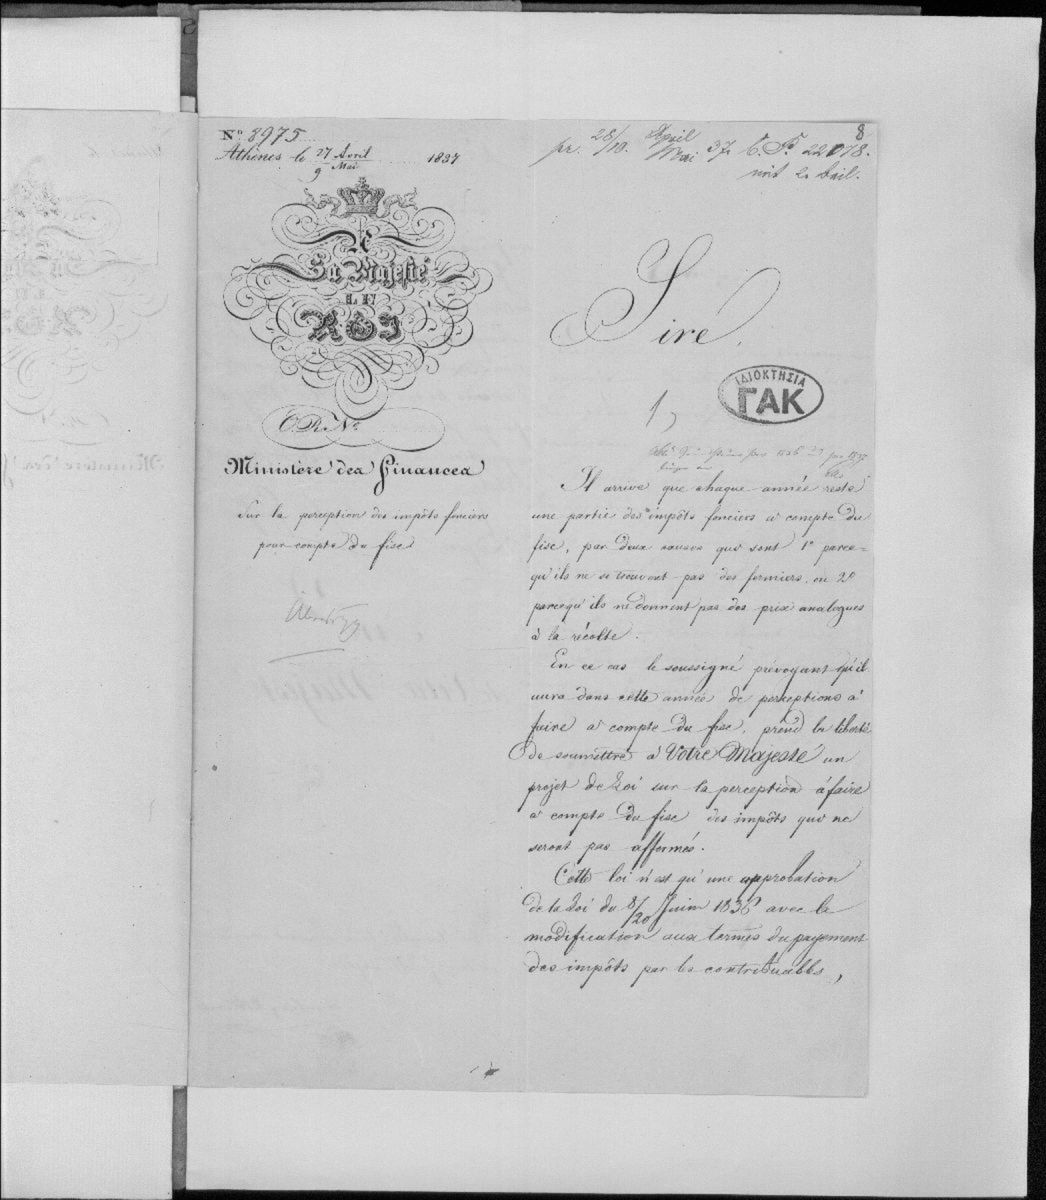 Nº 8975
Athènes le 27 Avril / 9 Mai 1837
A
Sa Majesté
LE
ROI
O.R.Nº
Ministère des Finances
Sur la perception des impôts fonciers
pour compte du fisc
8
pr. 28/10. April/Mai 37. 22078.
mit 2 Beil.
Sire,
ΙΔΙΟΚΤΗΣΙΑ
ΓΑΚ
1,
Il arrive que chaque année reste
une partie des impôts fonciers a compte du
fisc, par deux causes qui sont 1º parce-
qu'ils ne se trouvent pas des fermiers, ou 2º
parcequ'ils ne donnent pas des prix analogues
à la récolte.
En ce cas le soussigné prévoyant qu'il
aura dans cette année de perceptions à
faire a compte du fisc, prend la liberté
de soumettre à Votre Majesté un
projet de Loi sur la perception à faire
a compte du fisc des impôts qui ne
seront pas affermés.
Cette loi n'est qu'une approbation
de la Loi du 8/20 Juin 1836 avec la
modification aux termes du payement
des impôts par les contribuables,